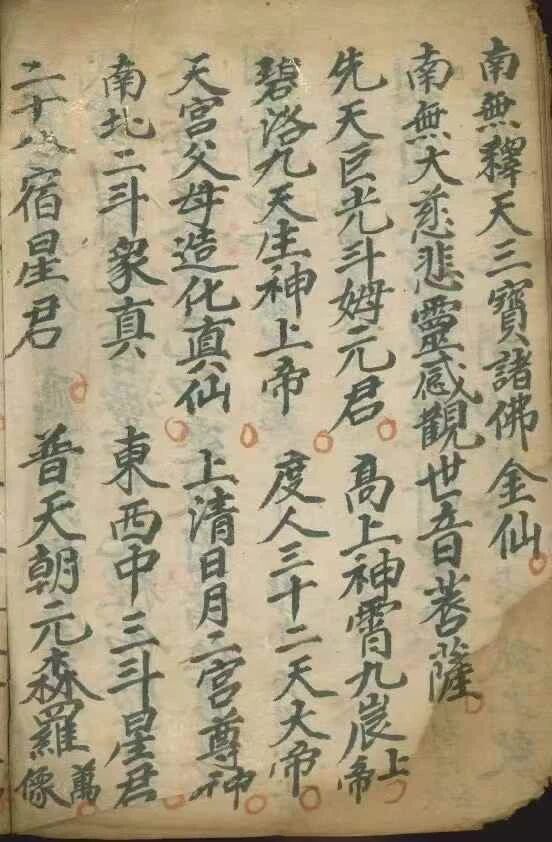 南無釋天三寶諸佛金仙
南無大慈悲靈感觀世音菩薩
先天巨光斗姆元君 高上神霄九宸上帝
碧洛九天生神上帝 度人三十二天大帝
天宮父母造化真仙 上清日月二宮尊神
南北二斗衆真 東西中三斗星君
二十八宿星君 普天朝元森羅萬像